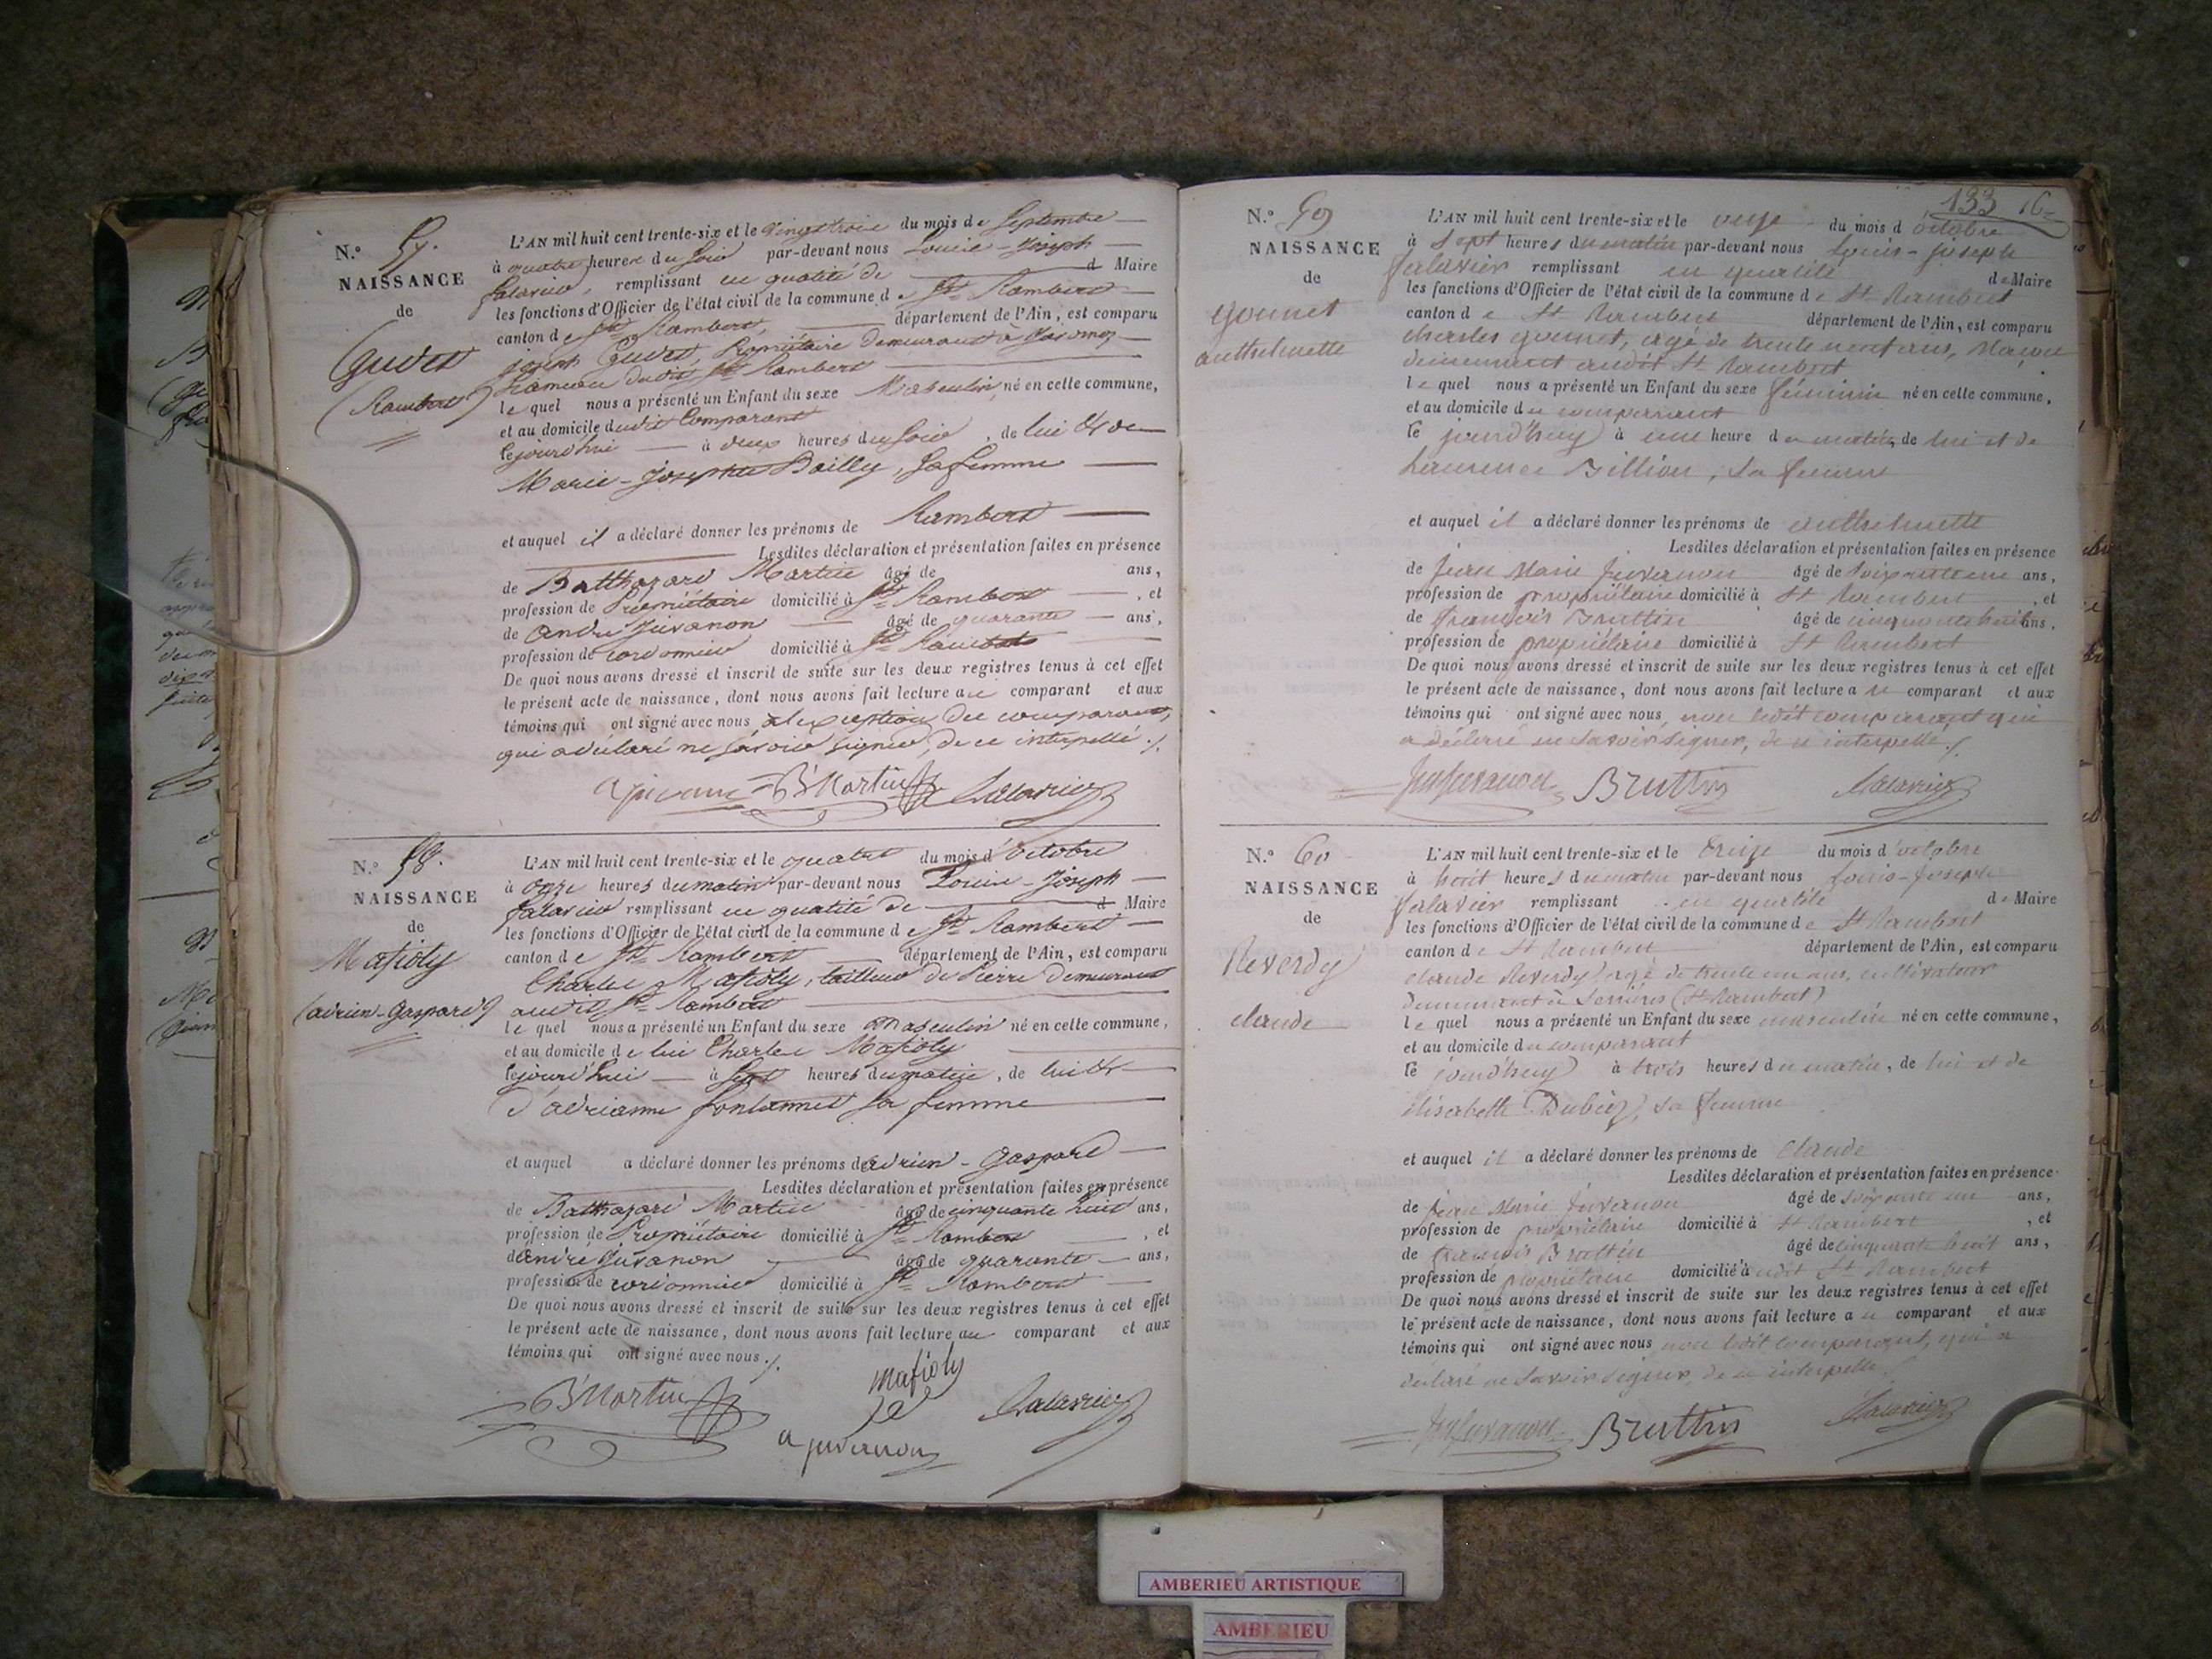 N.º 57.
NAISSANCE
de
Gudet
(Rambert)
L'AN mil huit cent trente-six et le vingt trois du mois de Septembre
à quatre heures du Soir par-devant nous Louis-Joseph
Salavier, remplissant en qualité de d Maire
les fonctions d'Officier de l'état civil de la commune de St Rambert
canton de St Rambert, département de l'Ain, est comparu
joseph Gudet, Propriétaire demeurant à
hameau dudit St Rambert
le quel nous a présenté un Enfant du sexe Masculin, né en cette commune,
et au domicile dudit Comparant
le jourd'hui à deux heures du Soir, de lui et de
Marie-Josephte Bailly, sa femme
et auquel il a déclaré donner les prénoms de Rambert
Lesdites déclaration et présentation faites en présence
de Balthazard Martin âgé de ans,
profession de Propriétaire domicilié à St Rambert, et
de André Juvanon âgé de quarante ans,
profession de cordonnier domicilié à St Rambert
De quoi nous avons dressé et inscrit de suite sur les deux registres tenus à cet effet
le présent acte de naissance, dont nous avons fait lecture au comparant et aux
témoins qui ont signé avec nous, à l'exception du comparant,
qui a déclaré ne savoir signer, de ce interpellé ./.
B Martin Salavier
N.º 58.
NAISSANCE
de
Mafioly
(adrien-Gaspard)
L'AN mil huit cent trente-six et le quatre du mois d'octobre
à onze heures du matin par-devant nous Louis-Joseph
Salavier remplissant en qualité de d Maire
les fonctions d'Officier de l'état civil de la commune de St Rambert
canton de St Rambert département de l'Ain, est comparu
Charles Mafioly, tailleur de Pierre demeurant
audit St Rambert
le quel nous a présenté un Enfant du sexe Masculin né en cette commune,
et au domicile de lui Charles Mafioly
le jourd'hui à Sept heures du matin, de lui et
d'adrianne fontannet sa femme
et auquel a déclaré donner les prénoms d'adrien-Gaspard
Lesdites déclaration et présentation faites en présence
de Balthazard Martin âgé de cinquante huit ans,
profession de Propriétaire domicilié à St Rambert, et
d'andré Juvanon âgé de quarante ans,
profession de cordonnier domicilié à St Rambert
De quoi nous avons dressé et inscrit de suite sur les deux registres tenus à cet effet
le présent acte de naissance, dont nous avons fait lecture au comparant et aux
témoins qui ont signé avec nous ./.
B Martin Mafioly Salavier
133
N.º 59
NAISSANCE
de
gonnet
anthelmette
L'AN mil huit cent trente-six et le onze du mois d'octobre
à Sept heures du matin par-devant nous Louis-joseph
Salavier remplissant en qualité de Maire
les fonctions d'Officier de l'état civil de la commune de St Rambert
canton de St Rambert département de l'Ain, est comparu
charles gonnet, agé de trente neuf ans, Maçon
demeurant audit St Rambert
le quel nous a présenté un Enfant du sexe féminin né en cette commune,
et au domicile du comparant
le jourd'huy à une heure du matin, de lui et de
Laurence Billion, sa femme
et auquel il a déclaré donner les prénoms de anthelmette
Lesdites déclaration et présentation faites en présence
de Jean Marie Juvanon âgé de soixante un ans,
profession de propriétaire domicilié à St Rambert, et
de françois Bruttin âgé de cinquante huit ans,
profession de propriétaire domicilié à St Rambert
De quoi nous avons dressé et inscrit de suite sur les deux registres tenus à cet effet
le présent acte de naissance, dont nous avons fait lecture au comparant et aux
témoins qui ont signé avec nous, non ledit comparant qui
a déclaré ne savoir signer, de ce interpellé ./.
Bruttin Salavier
N.º 60
NAISSANCE
de
Reverdy
claude
L'AN mil huit cent trente-six et le treize du mois d'octobre
à huit heures du matin par-devant nous Louis-Joseph
Salavier remplissant en qualité de Maire
les fonctions d'Officier de l'état civil de la commune de St Rambert
canton de St Rambert département de l'Ain, est comparu
claude Reverdy, agé de trente un ans, cultivateur
demeurant à Serrières (St Rambert)
le quel nous a présenté un Enfant du sexe masculin né en cette commune,
et au domicile du comparant
le jourd'huy à trois heures du matin, de lui et de
Elisabette Dubiez, sa femme
et auquel il a déclaré donner les prénoms de Claude
Lesdites déclaration et présentation faites en présence
de Jean Marie Juvanon âgé de soixante un ans,
profession de propriétaire domicilié à St Rambert, et
de françois Bruttin âgé de cinquante huit ans,
profession de propriétaire domicilié audit St Rambert
De quoi nous avons dressé et inscrit de suite sur les deux registres tenus à cet effet
le présent acte de naissance, dont nous avons fait lecture au comparant et aux
témoins qui ont signé avec nous non ledit comparant, qui a
déclaré ne savoir signer, de ce interpellé ./.
Bruttin Salavier
AMBERIEU ARTISTIQUE
AMBERIEU